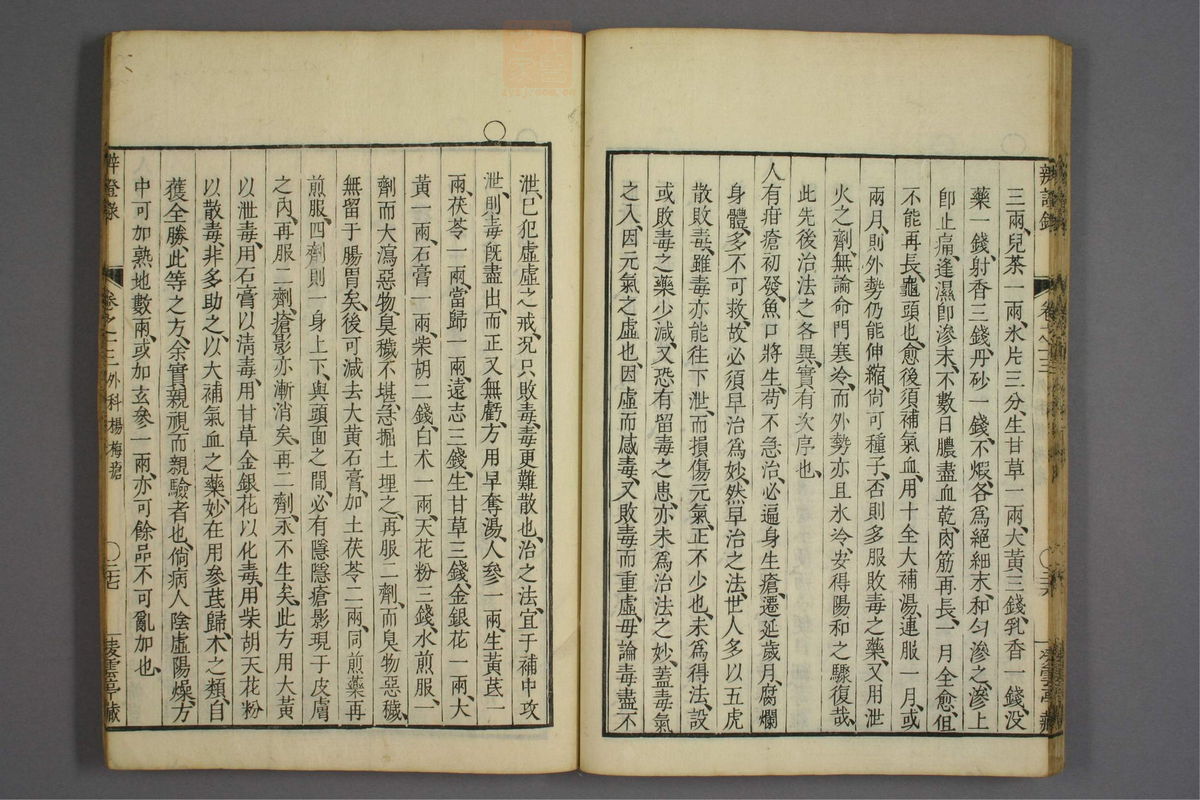 三兩、兒茶一兩、氷片三分、生甘草一兩、大黃三錢、乳香一錢、没
藥一錢、射香三錢、丹砂一錢、不煆、各爲絕細末、和勻滲之、滲上
卽止痛、逢濕卽滲末、不數日膿盡血乾、肉筋再長、一月全愈、但
不能再長龜頭也、愈後須補氣血、用十全大補湯、連服一月、或
兩月、則外勢仍能伸縮、尙可種子、否則多服敗毒之藥、又用泄
火之劑、無論命門寒冷、而外勢亦且氷冷、安得陽和之驟復哉、
此先後治法之各異、實有次序也、
人有疳瘡初發、魚口將生、苟不急治、必遍身生瘡、遷延歲月、腐爛
身體、多不可救、故必須早治爲妙、然早治之法、世人多以五虎
散敗毒、雖毒亦能往下泄、而損傷元氣、正不少也、未爲得法、設
或敗毒之藥少減、又恐有留毒之患、亦未爲治法之妙、蓋毒氣
之入、因元氣之虛也、因虛而感毒、又敗毒而重虛、毋論毒盡不
辨證錄
卷之十三
二十六
淩雲亭藏
○
泄、已犯虛虛之戒、况只敗毒、毒更難散也、治之法、宜于補中攻
泄、則毒旣盡出、而正又無虧、方用早奪湯、人參一兩、生黃芪一
兩、茯苓一兩、當歸一兩、遠志三錢、生甘草三錢、金銀花一兩、大
黃一兩、石膏一兩、柴胡二錢、白朮一兩、天花粉三錢、水煎服、一
劑而大瀉惡物、臭穢不堪、急掘土埋之、再服二劑、而臭物惡穢、
無留于腸胃矣、後可減去大黃石膏、加土茯苓二兩、同煎藥、再
煎服、四劑則一身上下、與頭面之間、必有隱隱瘡影現于皮膚
之內、再服二劑、瘡影亦漸消矣、再二劑、永不生矣、此方用大黃
以泄毒、用石膏以淸毒、用甘草金銀花以化毒、用柴胡天花粉
以散毒、非多助之、以大補氣血之藥、妙在用參芪歸朮之類、自
獲全勝、此等之方、余實親視而親驗者也、倘病人陰虛陽燥、方
中可加熟地數兩、或加玄參一兩、亦可、餘品不可亂加也、
辨證錄
卷之十三外科楊梅瘡
○二十七
淩雲亭藏